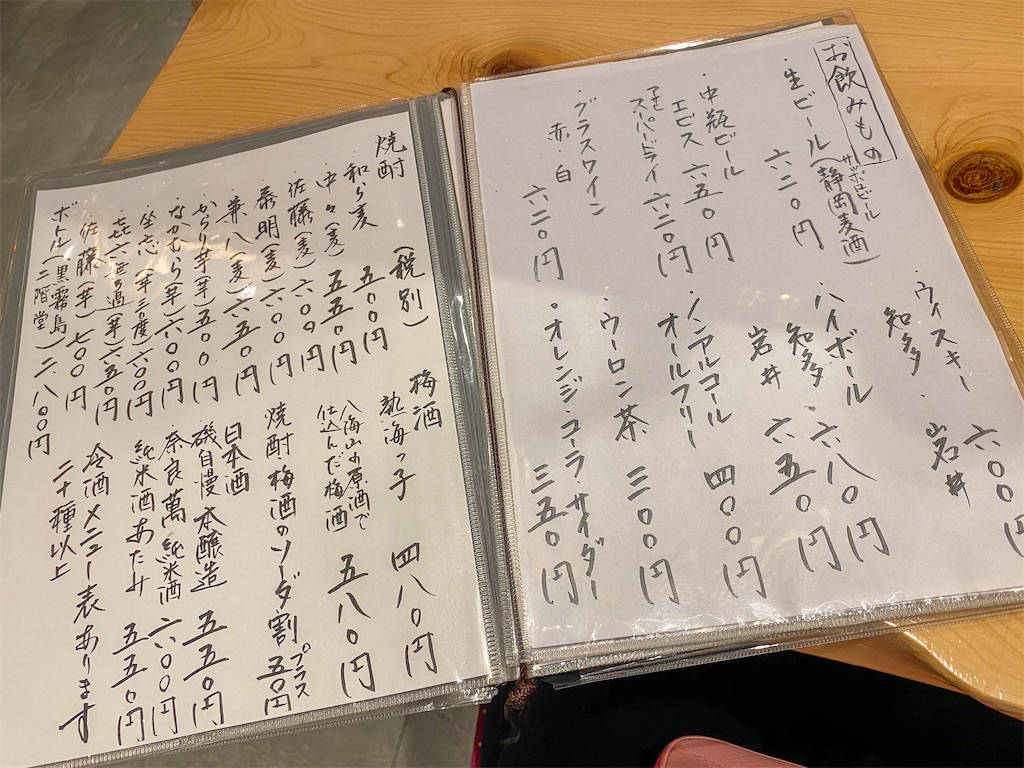 お飲みもの
・生ビール(静岡麦酒)
サッポロビール
六二〇円
・中瓶ビール
エビス 六五〇円
アサヒスーパードライ 六二〇円
・グラスワイン
赤 白 六二〇円
・ウィスキー
知多・岩井 六〇〇円
・ハイボール
知多 六八〇円
岩井 六五〇円
・ノンアルコール
オールフリー 四〇〇円
・ウーロン茶 三〇〇円
・オレンジ・コーラ・サイダー 三五〇円
焼酎 (税別)
和ら麦 五〇〇円
中々(麦) 五五〇円
佐藤(麦) 六〇〇円
泰明(麦) 六〇〇円
兼八(麦) 六五〇円
からり芋(芋) 五〇〇円
なかむら(芋) 六〇〇円
(芋三〇度) 六〇〇円
㐂六(芋) 六五〇円
佐藤(芋) 七〇〇円
ボトル(黒霧島 二階堂) 二、八〇〇円
梅酒
熱海っ子 四八〇円
八海山の原酒で
仕込んだ梅酒 五八〇円
焼酎梅酒のソーダ割 プラス五〇円
日本酒
磯自慢 本醸造 五五〇円
奈良萬 純米酒 六〇〇円
純米酒あたみ 五五〇円
冷酒メニュー表あります
二十種以上